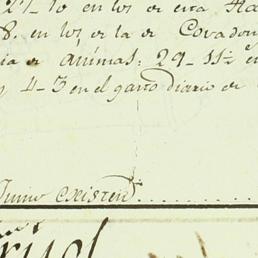 27-10 en los de esta Ha
8. en los de la de Covadon
ia de animas: 29-11½ en
4-3 en el gasto diario de
Junio existen